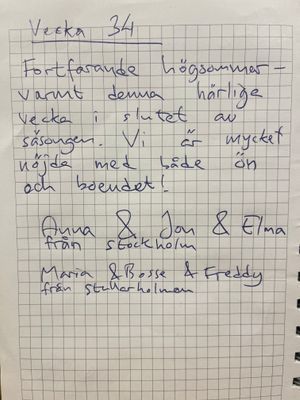 Vecka 34
Fortfarande högsommar-
varmt denna härliga
vecka i slutet av
säsongen. Vi är mycket
nöjda med både ön
och boendet!
Anna & Jon & Elma
från stockholm
Maria & Bosse & Freddy
från stallarholmen